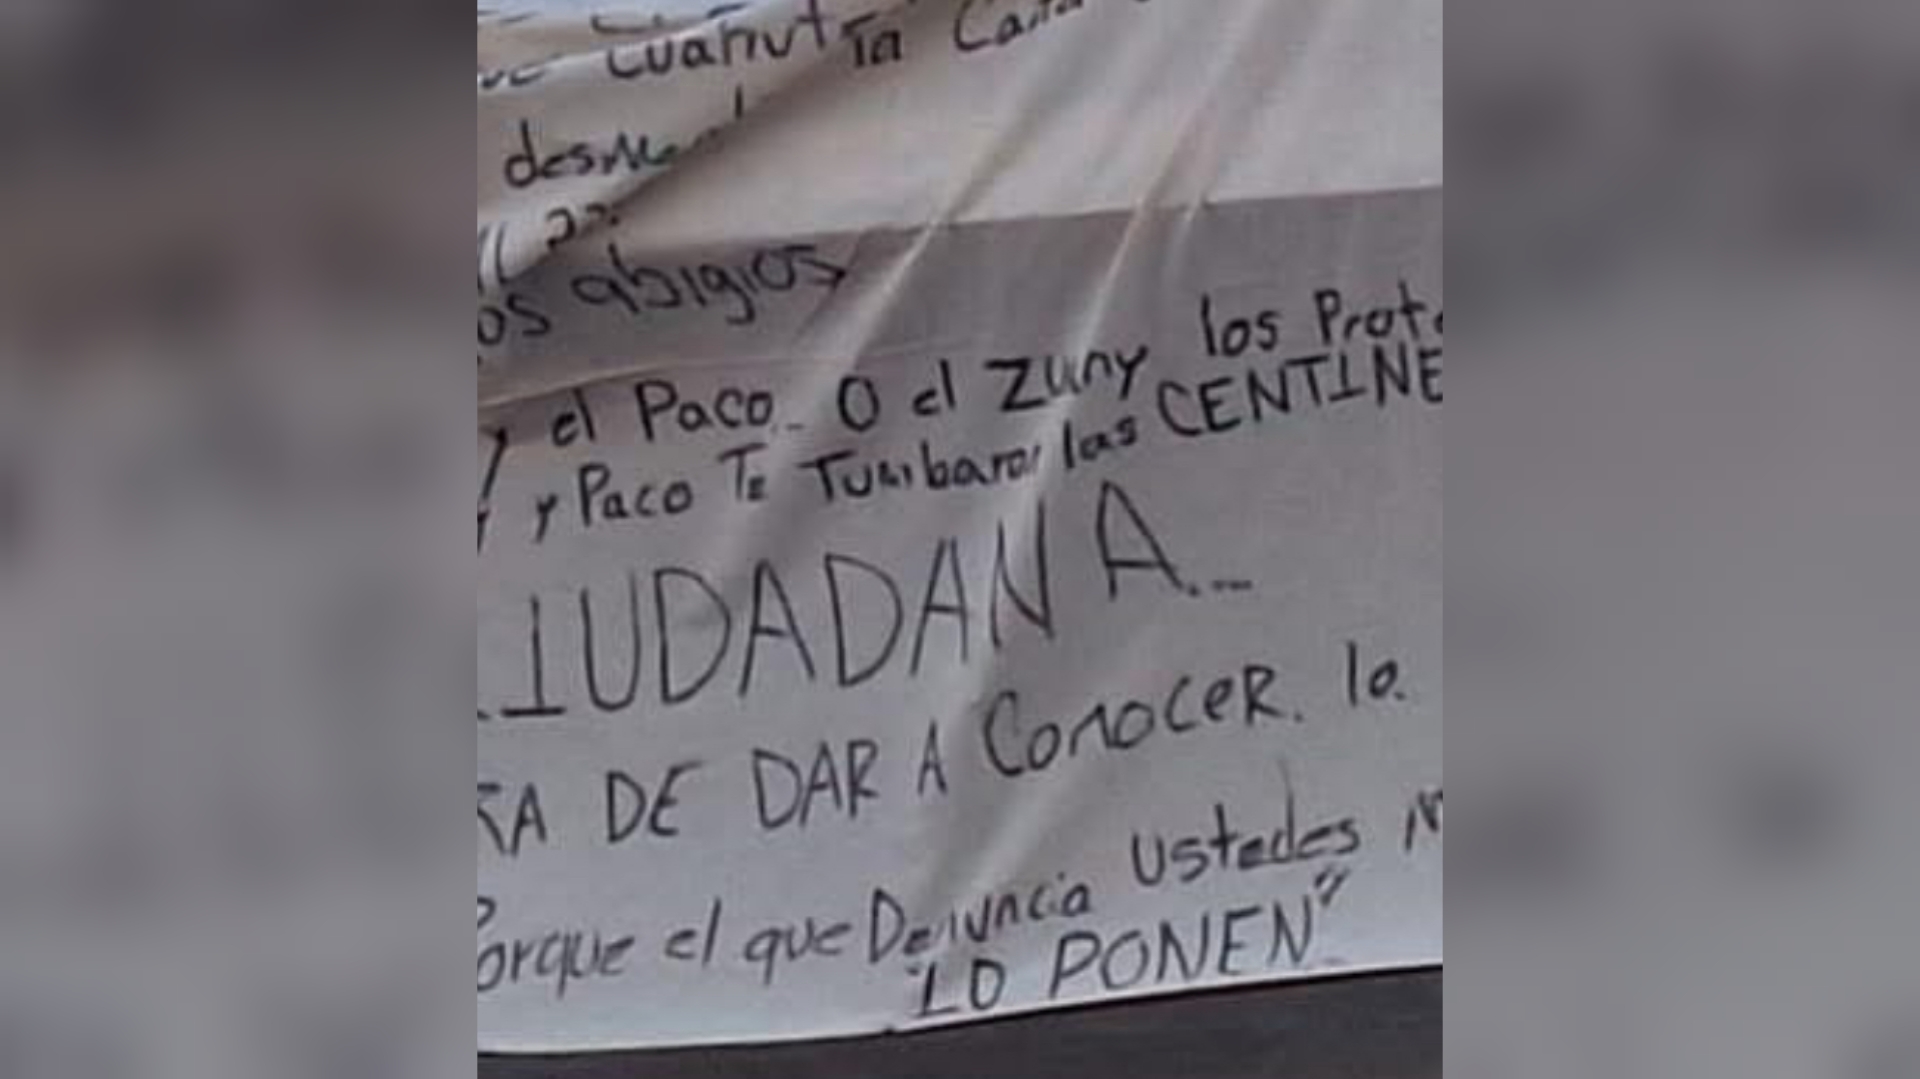 Cuahut la
os abigios
y el Paco.. O el Zuny los Prot
y Paco Te Tumbaron las CENTINE
IUDADANA...
RA DE DAR A ConoceR. lo.
Porque el que Denuncia ustedes
"LO PONEN"